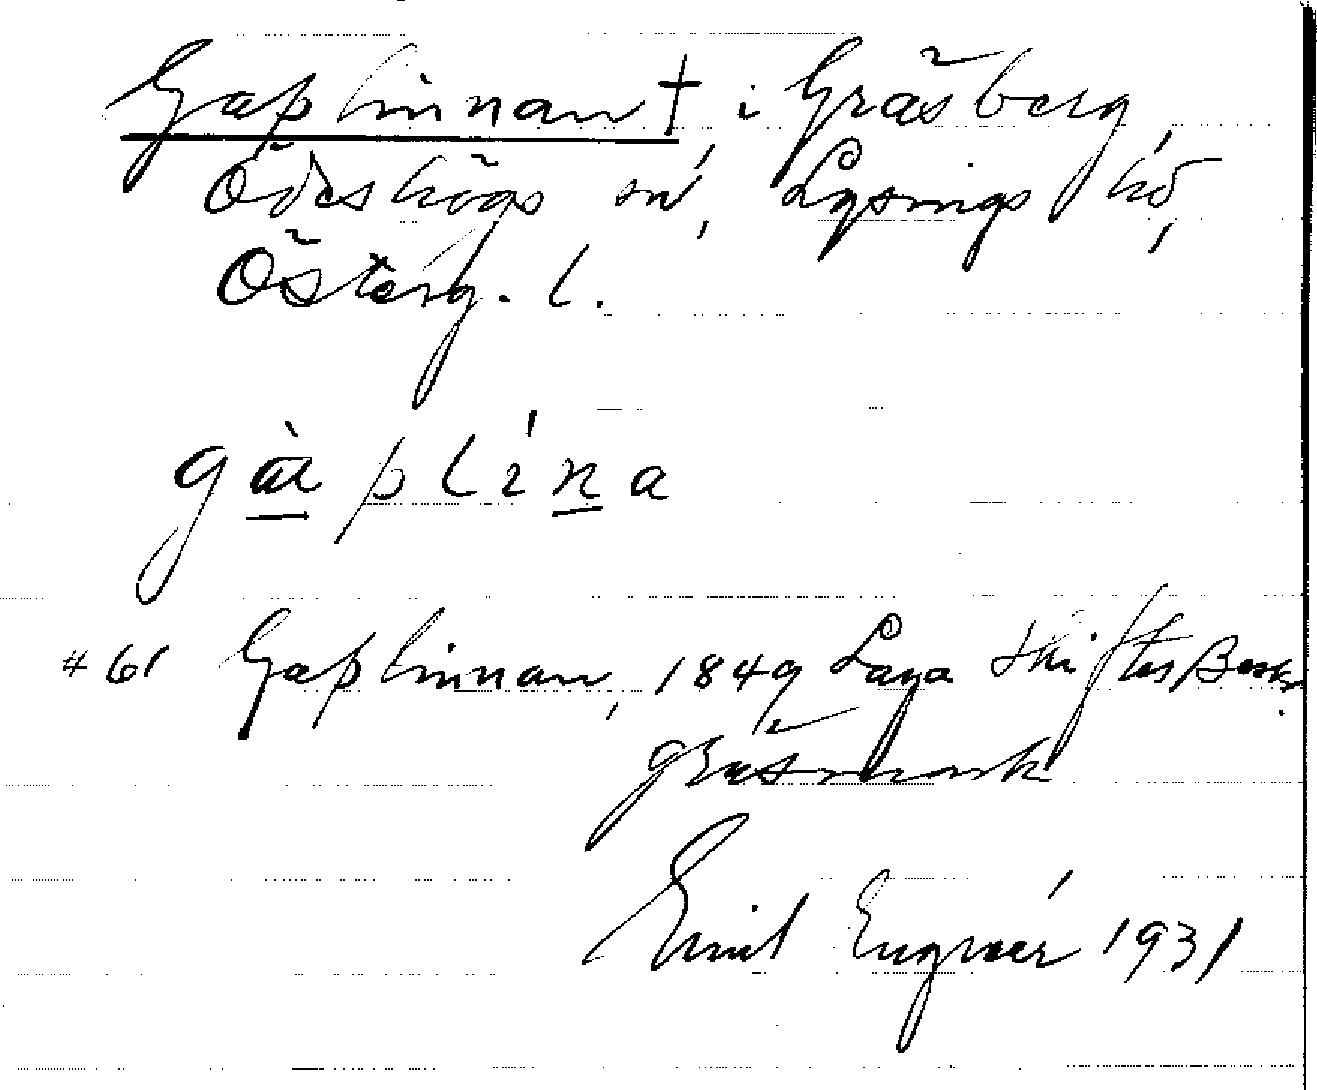 Gaplinnan † i Gräsberg,
Ödeshögs sn, Lysings hd,
Österg. l.
gàplína
#61 Gaplinnan, 1849 Laga Skiftes Beskr.
gräsmark
Emil Engnér 1931